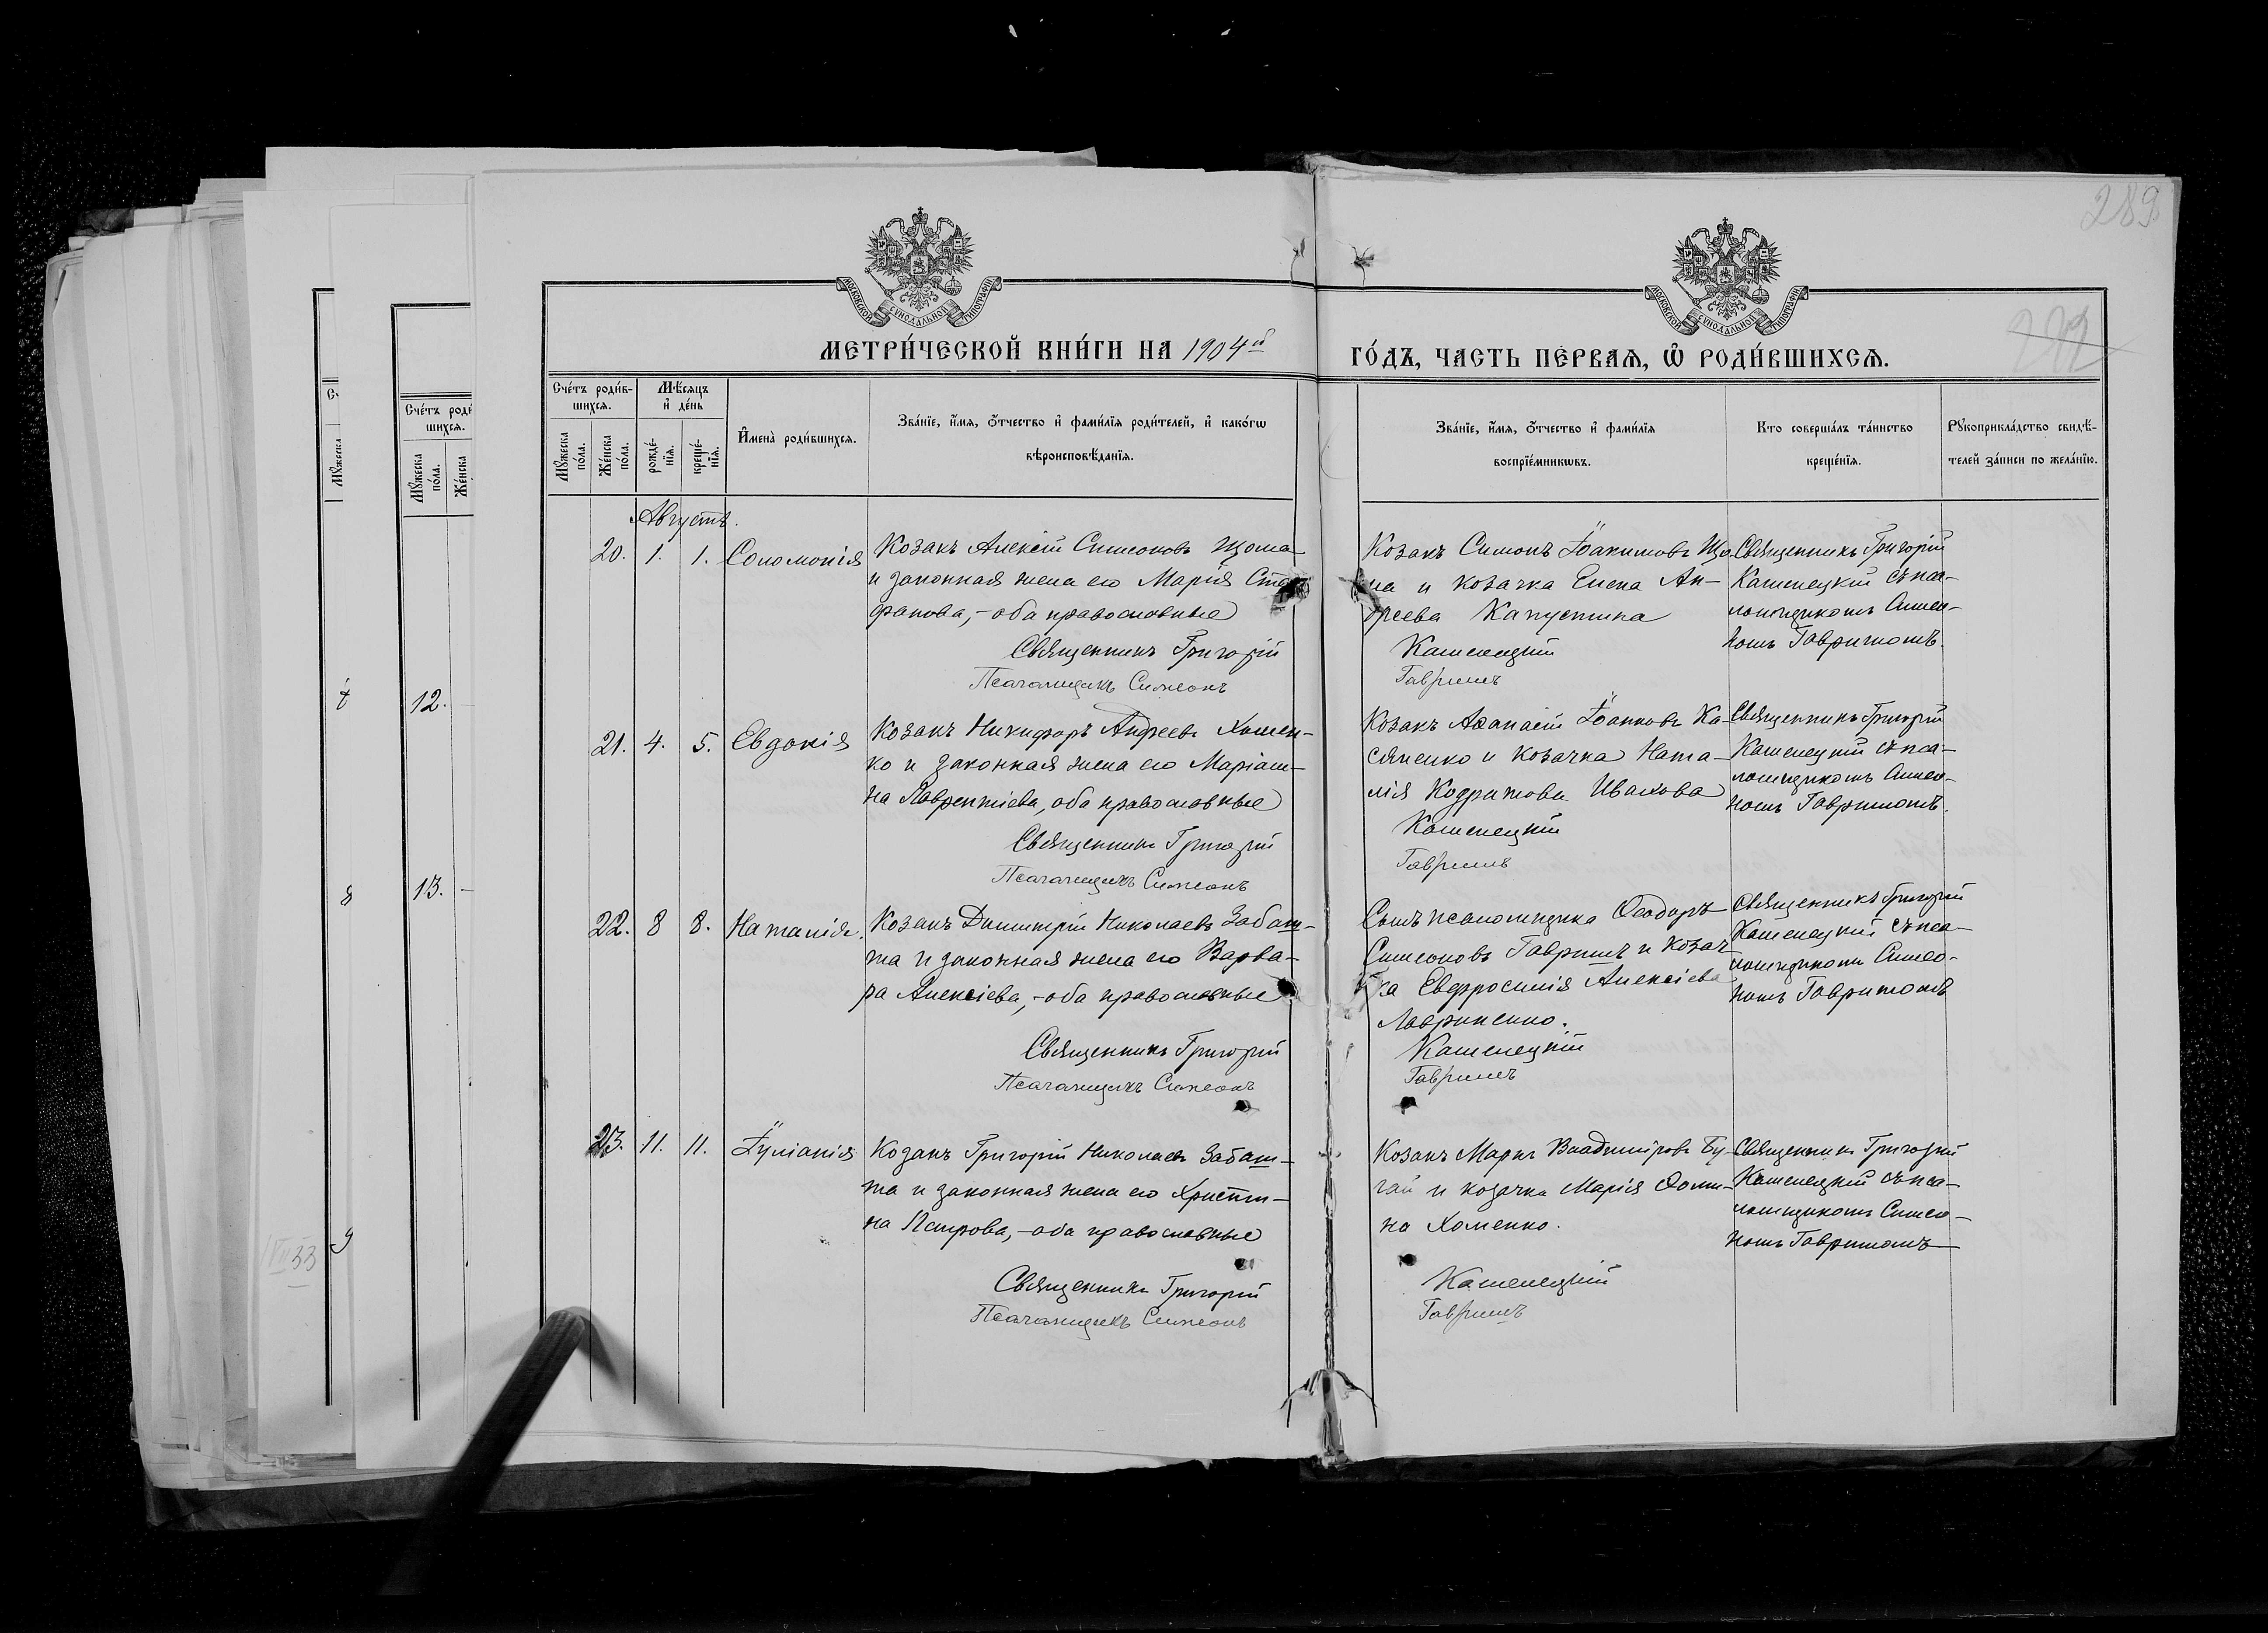 289
МОСКОВСКОЙ СѴНОДАЛЬНОЙ ТИПОГРАФІИ
МОСКОВСКОЙ СѴНОДАЛЬНОЙ ТИПОГРАФІИ
МЕТРИ́ЧЕСКОЙ КНИ́ГИ НА 1904й
ГО́ДЪ, ЧАСТЬ ПЕ́РВАѦ, Ѽ РОДИ́ВШИХСѦ.
Сче́тъ роди́в-
шихсѧ.
Мꙋ́жеска по́ла.
Же́нска по́ла.
Мѣ́сѧцъ
и҆ де́нь
рожде́-
нїѧ.
креще́-
нїѧ.
И҆мена̀ роди́вшихсѧ.
Зва́нїе, и҆́мѧ, ѻ҆́тчество и҆ фами́лїѧ роди́телей, и҆ како́гѡ
вѣроисповѣ́данїѧ.
Зва́нїе, и҆́мѧ, ѻ҆́тчество и҆ фами́лїѧ
воспрїе́мникѡвъ.
Кто соверша́лъ та́инство
креще́нїѧ.
Рꙋкоприкла́дство свидѣ́-
телей за́писи по жела́нїю.
Сче́тъ роди́
шихсѧ.
Мꙋ́жеска
по́ла.
Же́нска
Мꙋ́жеска
12.
13.
8
9
33
Августъ.
20. 1. 1. Соломонія
Козакъ Алексій Симеоновъ Щома
и законная жена его Марія Сте
фанова, - оба православные
Священникъ Григорій
Псаломщикъ Симеонъ
Козакъ Симонъ Іоакимовъ Що
ма и козачка Елена Ан-
дреева Капустина
Каменецкій
Гавришъ
Священникъ Григорій
Каменецкій съ пса-
ломщикомъ Симео-
номъ Гавришомъ.
21. 4. 5. Евдокія
Козакъ Никифоръ Андреевъ Хомен-
ко и законная жена его Маріам-
на Лаврентіева, оба православные
Священникъ Григорій
Псаломщикъ Симеонъ
Козакъ Аѳанасій Іоанновъ Ка-
сяненко и козачка Ната-
лія Кодратова Иванова
Каменецкій
Гавришъ
Священникъ Григорій
Каменецкій съ пса-
ломщикомъ Симео-
номъ Гавришомъ.
22. 8 8. Наталія.
Козакъ Димитрій Николаевъ Забаш-
та и законная жена его Варва-
ра Алексіева, - оба православные
Священникъ Григорій
Псаломщикъ Симеонъ
Сынъ псаломщика Ѳеодоръ
Симеоновъ Гавришъ и козач
ка Евфросинія Алексіева
Лавриненко.
Каменецкій
Гавришъ
Священникъ Григорій
Каменецкій съ пса-
ломщикомъ Симео-
номъ Гавришомъ
23. 11. 11. Іуліанія
Козакъ Григорій Николаевъ Забаш-
та и законная жена его Христи-
на Петрова, - оба православные
Священникъ Григорій
Псаломщикъ Симеонъ
Козакъ Маркъ Владиміровъ Бу-
гай и козачка Марія Ѳоми-
на Хоменко.
Каменецкій
Гавришъ
Священникъ Григорій
Каменецкій съ пса-
ломщикомъ Симео-
номъ Гавришомъ